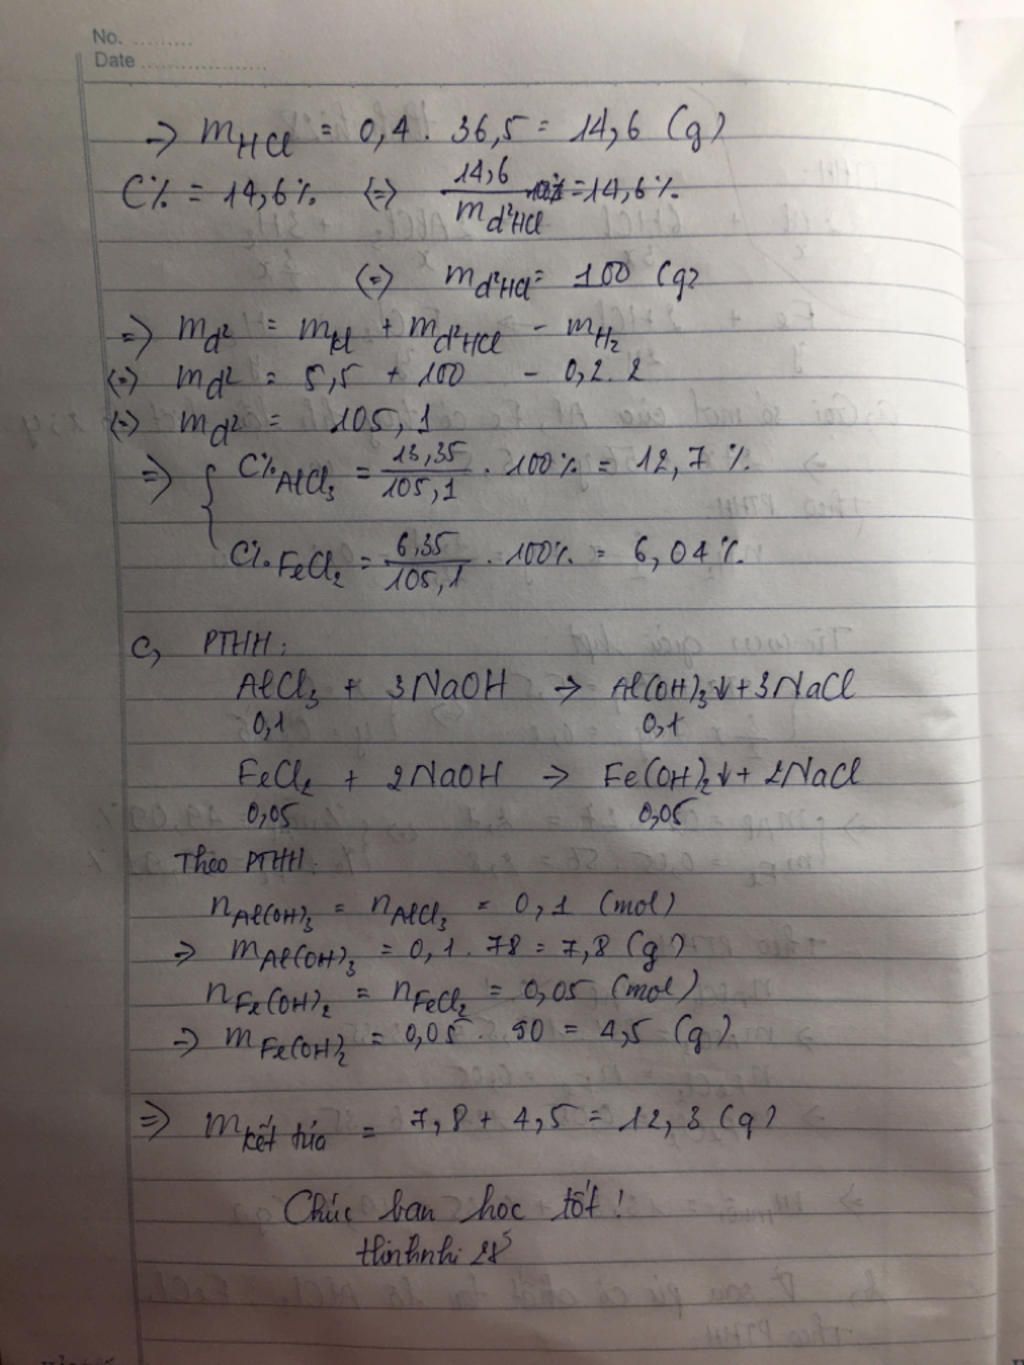 No. .........
Date ...................
=> mHCl = 0,4 . 36,5 = 14,6 (g)
C% = 14,6% (=) 14,6/md²HCl = 14,6%
(=) md²HCl = 100 (g)
=> md² = mkl + md²HCl - mH₂
(=) md² = 5,5 + 100 - 0,2.2
(=) md² = 105,1
=> { C%AlCl₃ = 13,35/105,1 . 100% = 12,7 %
C%FeCl₂ = 6,35/105,1 . 100% = 6,04%
c, PTHH:
AlCl₃ + 3NaOH → Al(OH)₃↓ + 3NaCl
0,1 0,1
FeCl₂ + 2NaOH → Fe(OH)₂↓ + 2NaCl
0,05 0,05
Theo PTHH:
nAl(OH)₃ = nAlCl₃ = 0,1 (mol)
=> mAl(OH)₃ = 0,1 . 78 = 7,8 (g)
nFe(OH)₂ = nFeCl₂ = 0,05 (mol)
=> mFe(OH)₂ = 0,05 . 90 = 4,5 (g)
=> mkết tủa = 7,8 + 4,5 = 12,3 (g)
Chúc bạn học tốt!
thinhnhi 28